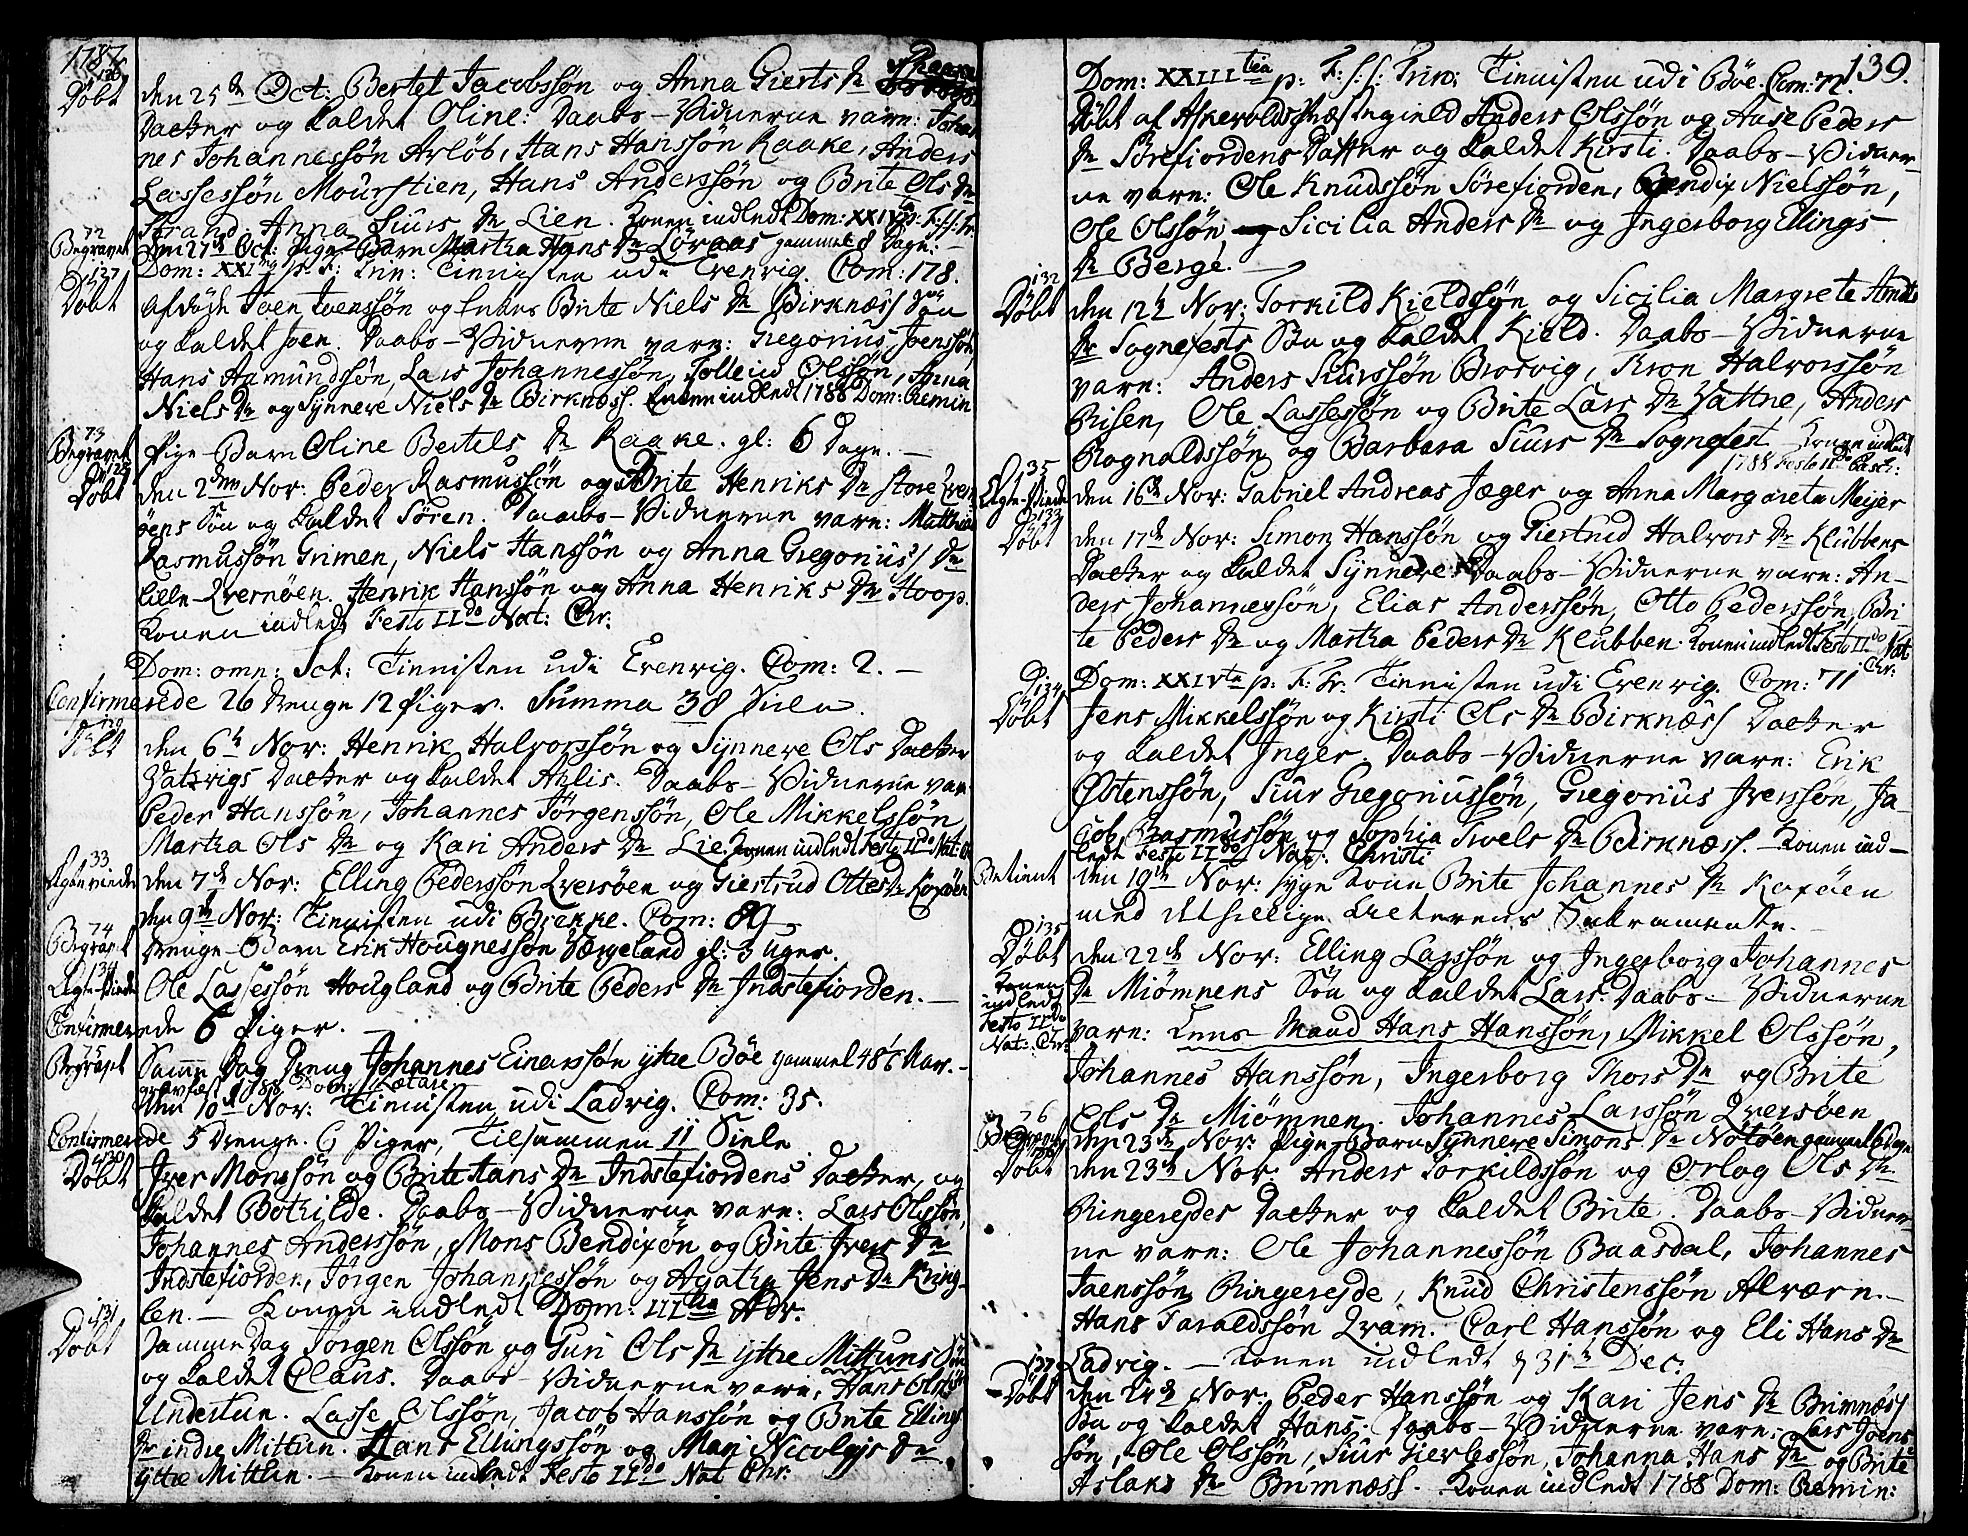 1787.
126
Döbt
den 25de Oct: Bertel Jacobssön og Anna Gierts Dr Raake
Datter og kaldet Oline: Daabs-Vidnerne vare: Johan
nes Johannessön Arlöb, Hans Hanssön Raake, Anders
Lassessön Mourstien, Hans Anderssön og Brite Ols Dr
Strand, Anna Siurs Dr Lien. Konen indledt Dom: XXIV p: F: S: Tr:
72
Begravet den 27de Oct: Pige-Barn Martha Hans Dr Löraas gammel 8 Dage.
Dom: XXI p: F: Trin: Tienisten udi Evenvig. Com: 178.
127
Döbt
Afdöde Joen Joenssön og Enken Brite Niels Dr Birknæss Sön
og kaldet Joen. Daabs-Vidnerne vare: Gregorius Joenssön
Hans Amundssön, Lars Johannessön, Tolleiv Olssön, Anna
Niels Dr og Synneve Niels Dr Birknæss. Enken indledt 1788 Dom: Remin
73
Begravet Pige-Barn Oline Bertels Dr Raake. gl: 6 Dage.
128
Döbt
den 2den Nov: Peder Rasmussön og Brite Henriks Dr store Qvern
öens Sön og kaldet Sören. Daabs-Vidnerne vare: Matthias
Rasmussön Grimen, Niels Hanssön og Anna Gregorius's Dr
Lille-Qvernöen. Henrik Hanssön og Anna Henriks Dr Hoop.
Konen indledt Festo IIdo Nat: Chr:
Dom: omn: Sct: Tienisten udi Evenvig. Com: 2.
Confirmerede 26 Drenge 12 Piger. Summa 38 Siele.
129
Döbt
den 6te Nov: Henrik Halvorssön og Synneve Ols Datter
Vatzvigs Datter og kaldet Ahlis. Daabs-Vidnerne var
Peder Hanssön, Johannes Jörgenssön, Ole Mikkelssön
Martha Ols Dr og Kari Anders Dr Lie. Konen indledt Festo IIdo Nat: Ch
33
Ægteviede den 7de Nov: Elling Pederssön Qversöen og Giertrud Ottes Dr Koxöen
den 9de Nov: Tienisten udi Brekke. Com: 89
74
Begravet Drenge-Barn Erik Hougnessön Værgeland gl: 3 Uger.
34
Ægte-Viede Ole Lassessön Hougland og Brite Peders Dr Indstefiorden.
Confirmerede 6 Piger.
75
Begravet Samme Dag Dreng Johannes Einarssön yttre Böe gammel 48 Aar.
1788 Dom: Lætare
den 10de Nov: Tienisten udi Ladvig. Com: 35.
Confirmerede 5 Drenge. 6 Piger, Tilsammen 11 Siele
130
Döbt
Iver Monssön og Brite Hans Dr Indstefiordens Datter, og
kaldet Bothilde. Daabs-Vidnerne vare: Lars Olssön,
Johannes Anderssön, Mons Bendixön og Brite Ivers Dr
Indstefiorden, Jörgen Johannessön og Agatha Jens Dr Kring-
len. — Konen indledt Dom: IIItia Adv.
131
Döbt
Samme Dag Jörgen Olssön og Guri Ols Dr yttre Mittuns Sön
og kaldet Claus. Daabs-Vidnerne vare, Hans Olssön
Undertun. Lasse Olssön, Jacob Hanssön og Brite Ellings
Dr indre Mittun. Hans Ellingssön og Mari Nicolajs Dr
yttre Mittun. — Konen indledt Festo IIdo Nat Chr:
139.
Dom: XXIIItia p: F: S: S: Trin: Tienisten udi Böe. Com: 72.
Döbt af Askevolds Præstegield Anders Olssön og Aase Peders
Dr Sörefiordens Datter og kaldet Kirsti. Daabs-Vidner-
ne vare: Ole Knudssön Sörefiorden, Bendix Nielssön,
Ole Olssön, Sicilia Anders Dr og Ingerborg Ellings
Dr Berge.
132
Döbt
den 12te Nov: Torkild Kieldssön og Sicilia Margrete Amdts
Dr Sognefests Sön og kaldet Kield. Daabs-Vidnerne
vare: Anders Siurssön Brosvig, Iver Halvorssön
Risen, Ole Lassessön og Brite Lars Dr Vattne, Anders
Rognaldssön og Barbara Siurs Dr Sognefest. Konen indledt
1788 Festo IIdo Pasch:
35
Ægte-Viede den 16de Nov: Gabriel Andreas Jæger og Anna Margareta Meijer
133
Döbt
den 17de Nov: Simon Hanssön og Giertrud Halvors Dr Klubbens
Datter og kaldet Synneve. Daabs-Vidnerne vare: An-
ders Johannessön, Elias Anderssön, Otto Pederssön, Bri-
te Peders Dr og Martha Peders Dr Klubben. Konen indledt Festo IIdo Nat
Chr:
Dom: XXIVta p: F: Tr: Tienisten udi Evenvig. Com: 71
134
Döbt
Jens Mikkelssön og Kirsti Ols Dr Birknæss Datter
og kaldet Inger. Daabs-Vidnerne vare: Erik
Östenssön, Siur Gregoriussön, Gregorius Iverssön, Ja-
cob Rasmussön og Sophia Sivels Dr Birknæss. — Konen ind-
ledt Festo IIdo Nat: Christi
Betient den 19de Nov: syge Kone Brite Johannes Dr Koxöen
med det hellige Alterens Sakramente.
135
Döbt
Konen
indledt
Festo IIdo
Nat: Chr:
den 22de Nov: Elling Larssön og Ingerborg Johannes
Dr Miömnens Sön og kaldet Lars. Daabs-Vidnerne
vare: Lens-Mand Hans Hanssön, Mikkel Olssön,
Johannes Hanssön, Ingerborg Thors Dr og Brite
Ols Dr Miömnen. Johannes Larssön Qversöen
76
Begravet den 23de Nov: Pige-Barn Synneve Simons Dr Notöen gammel 6 Dage
136
Döbt
den 23de Nov: Anders Torkildssön og Orlog Ols Dr
Ringereydes Datter og kaldet Brite. Daabs-Vidner-
ne vare: Ole Johannessön Baasdal, Johannes
Joenssön Ringereyde, Knud Christenssön Alværn.
Hans Taraldssön Qvam. Carl Hanssön og Eli Hans Dr
Ladvig. — Konen indledt d 31te Dec:
137
Döbt
den 24de Nov: Peder Hanssön og Kari Jens Dr Brimnæss
Sön og kaldet Hans. Daabs-Vidnerne vare: Lars Joens
sön, Ole Olssön, Siur Gierlessön, Johanna Hans Dr og Brite
Aslaks Dr Brimnæss. Konen indledt 1788 Dom: Remin: